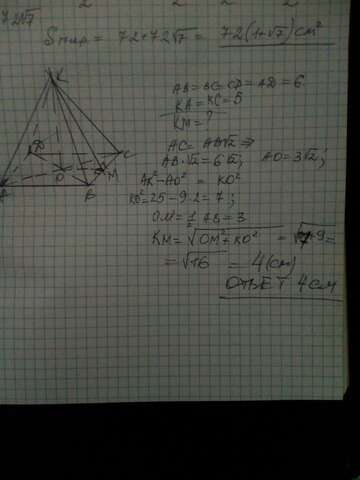 72√7
Sпир = 72+72√7 = 72(1+√7) см²
AB=BC=CD=AD=6
KA=KC=5
KM=?
AC= AB√2 ⇒
AB·√2=6√2; AO=3√2;
AK²-AO² = KO²
KO²=25-9·2=7;
OM=1/2 AB=3
KM=√OM²+KO² = √7+9=
=√16 = 4(см)
ОТВЕТ 4см
K
D
C
O
M
A
B